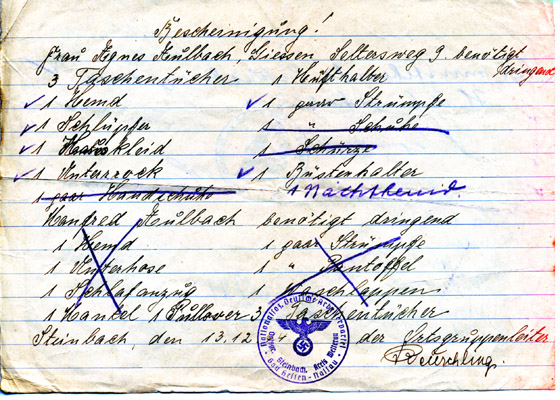 Bescheinigung!
Frau Agnes Aulbach, Giessen Seltersweg 9 benötigt
dringend
3 Taschentücher 1 Hüfthalter
1 Hemd 1 paar Strümpfe
1 Schlüpfer 1 " Schuhe
1 Hauskleid 1 Schürze
1 Unterrock 1 Büstenhalter
1 paar Handschuhe 1 Nachthemd.
Manfred Aulbach benötigt dringend
1 Hemd 1 paar Strümpfe
1 Unterhose 1 " Pantoffel
1 Schlafanzug 1 Waschlappen
1 Mantel 1 Pullover 3 Taschentücher
Steinbach, den 13.12 4 der Ortsgruppenleiter
Steinbach, Kreis
Gau Hessen-Nassau